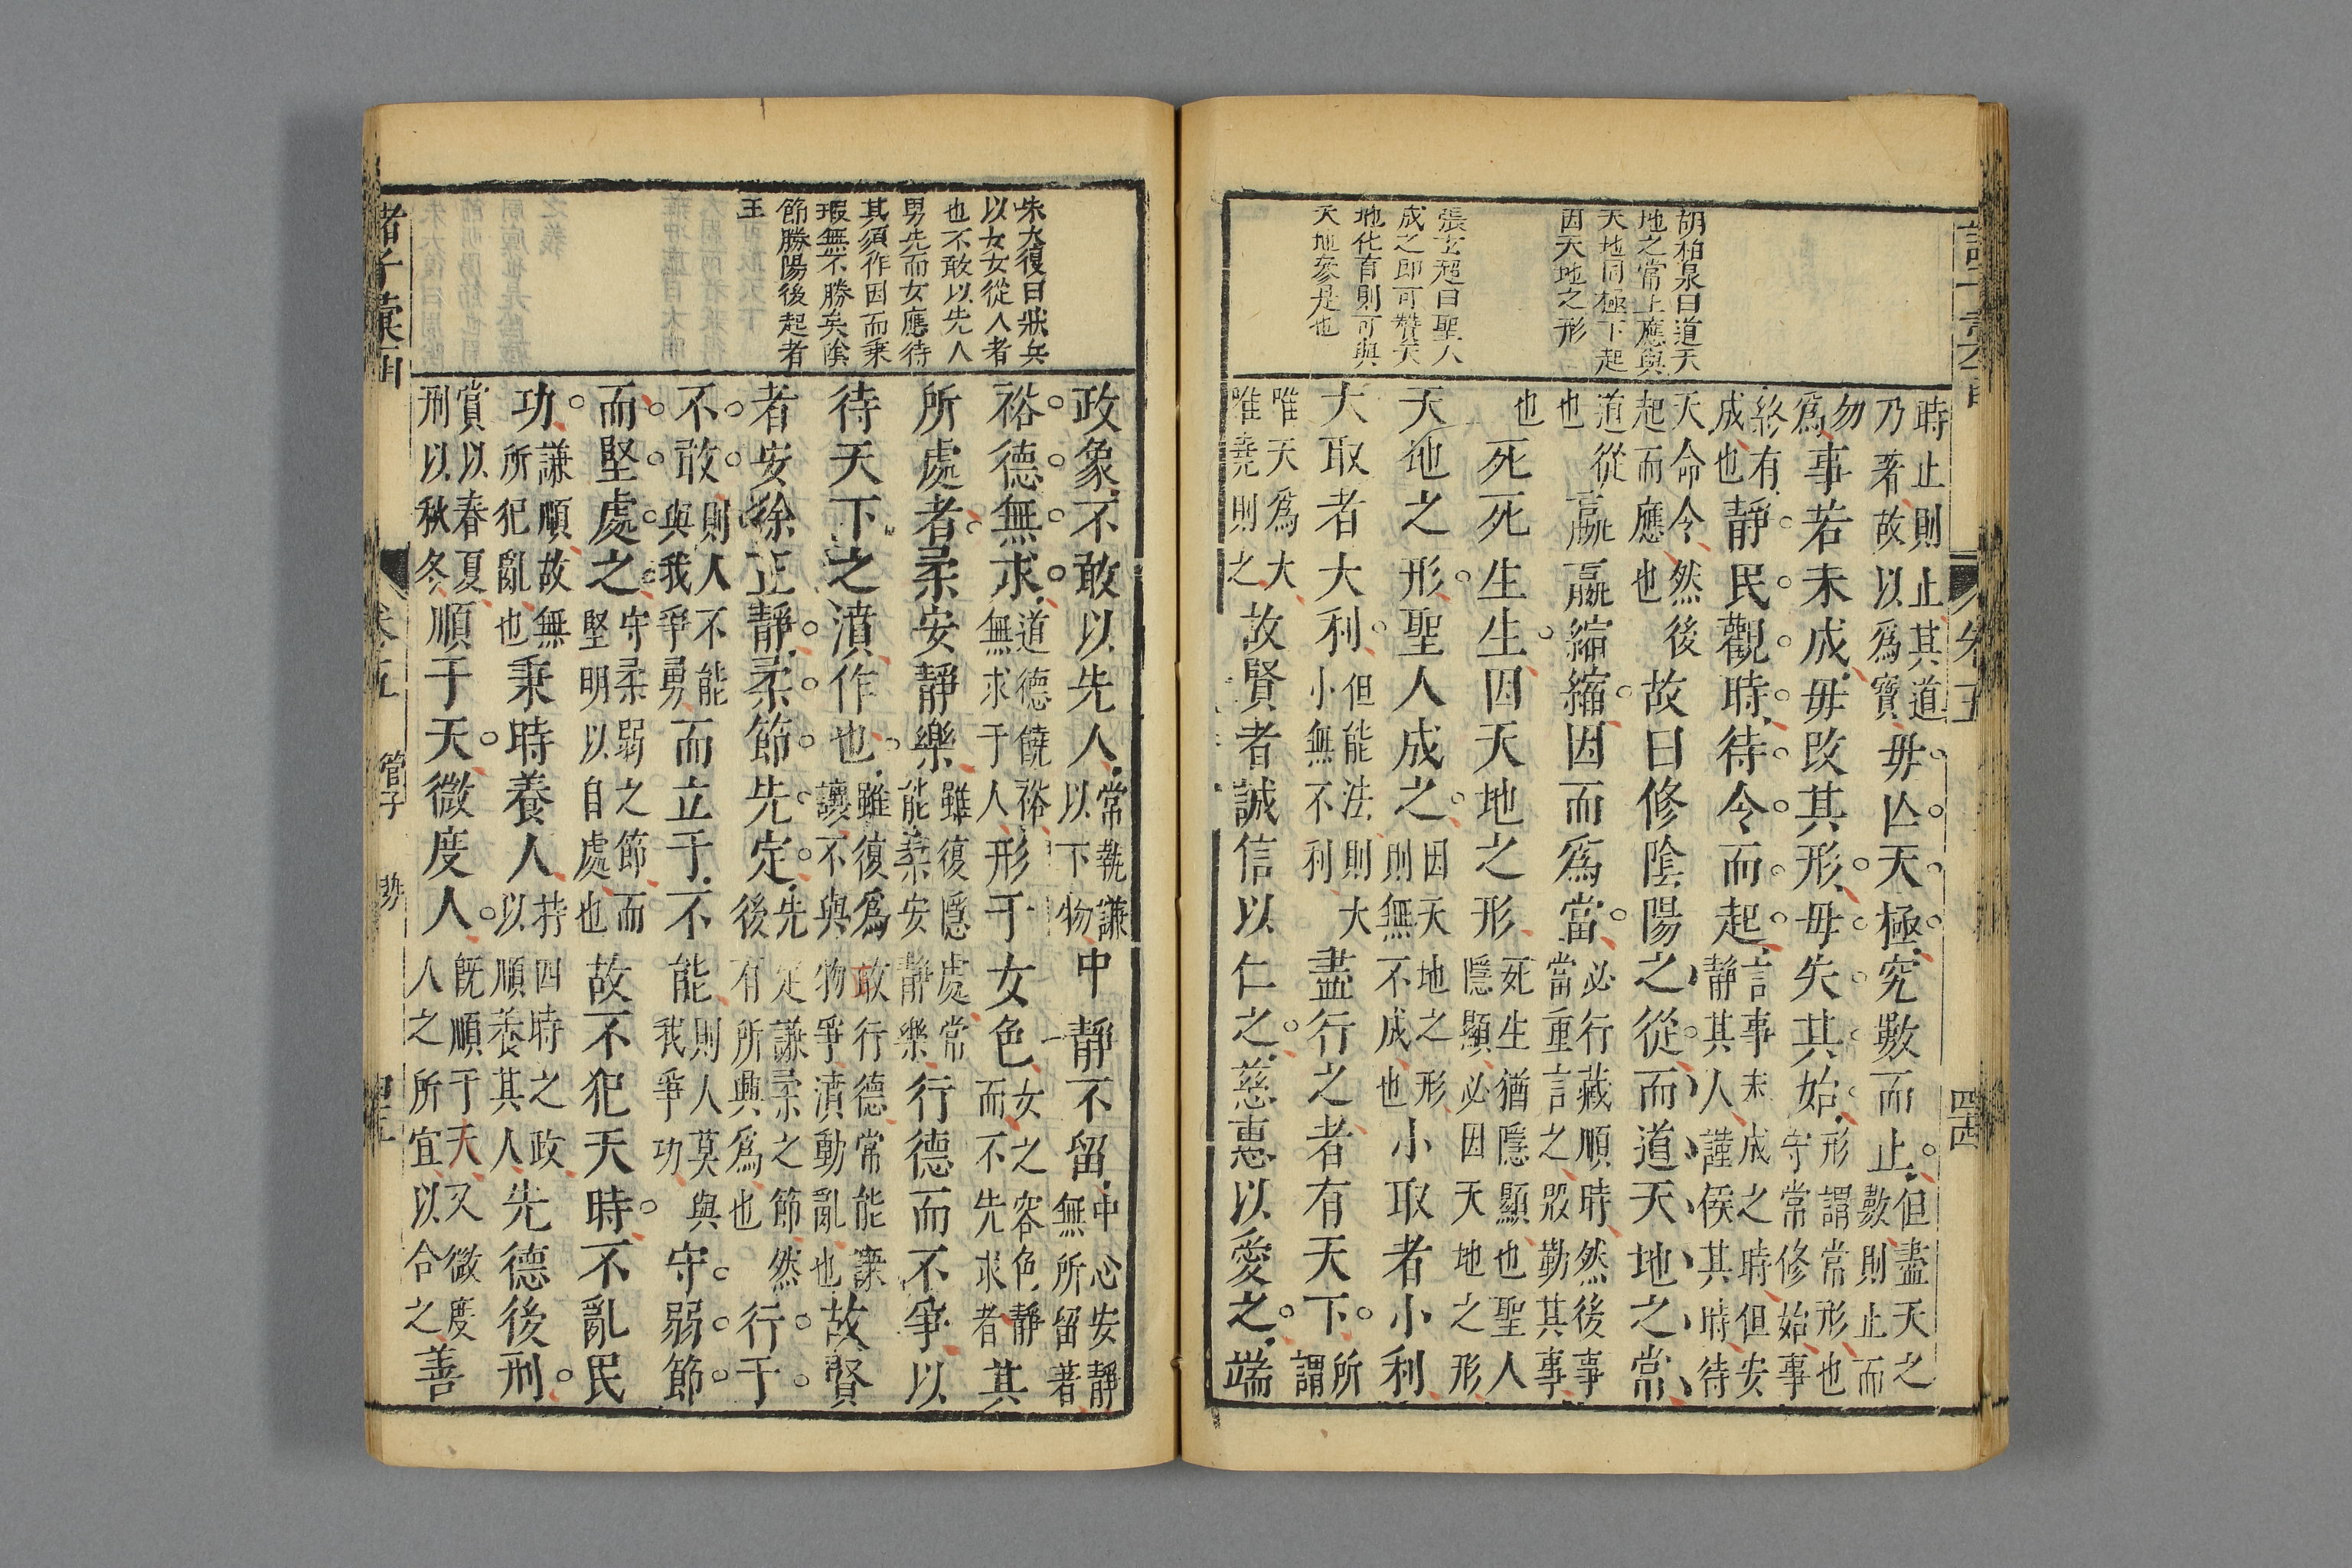 胡柏泉曰道天
地之常上應與
天地同極下起
因天地之形
張玄超曰聖人
成之即可贊天
地化育則可與
天地參是也
時止則止其道乃著故以爲寶毋亾天極究數而止但盡天之數則止而
勿爲事若未成毋改其形毋失其始形謂常形也守常修始事
終有成也靜民觀時待令而起言事未成之時但安靜其人謹候其時待
天命令然後起而應也故曰修陰陽之從而道天地之常
道從也嬴嬴縮縮因而爲當必行藏順時然後事當重言之殷勤其事
也死死生生因天地之形死生猶隱顯也聖人隱顯必因天地之形
天地之形聖人成之因天地之形則無不成也小取者小利
大取者大利但能法則大小無不利盡行之者有天下所謂
唯天爲大唯堯則之故賢者誠信以仁之慈惠以愛之端
卷五
四十四
朱大復曰狀兵
以女女從人者
也不敢以先人
男先而女應待
其須作因而乘
瑕無不勝矣陰
節勝陽後起者
王
政象不敢以先人常執謙以下物中靜不留中心安靜無所留著
裕德無求道德饒裕無求于人形于女色女之容色靜而不先求者其
所處者柔安靜樂雖復隱處常能柔安靜樂行德而不爭以
待天下之濆作也雖復爲敢行德常能謙讓不與物爭濆動亂也故賢
者安徐正靜柔節先定先定謙柔之節然後有所興爲也行于
不敢則人不能與我爭勇而立于不能則人莫與我爭功守弱節
而堅處之守柔弱之節而堅明以自處也故不犯天時不亂民
功謙順故無所犯亂也秉時養人持四時之政以順養其人先德後刑
賞以春夏刑以秋冬順于天微度人既順于天又微度人之所宜以合之善
諸子彙函
卷五
管子
勢